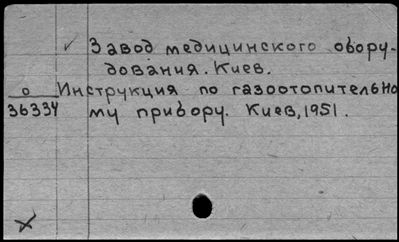 ✓ Завод медицинского обору-
дования. Киев.
о Инструкция по газоотопительно
36334 му прибору. Киев, 1951.